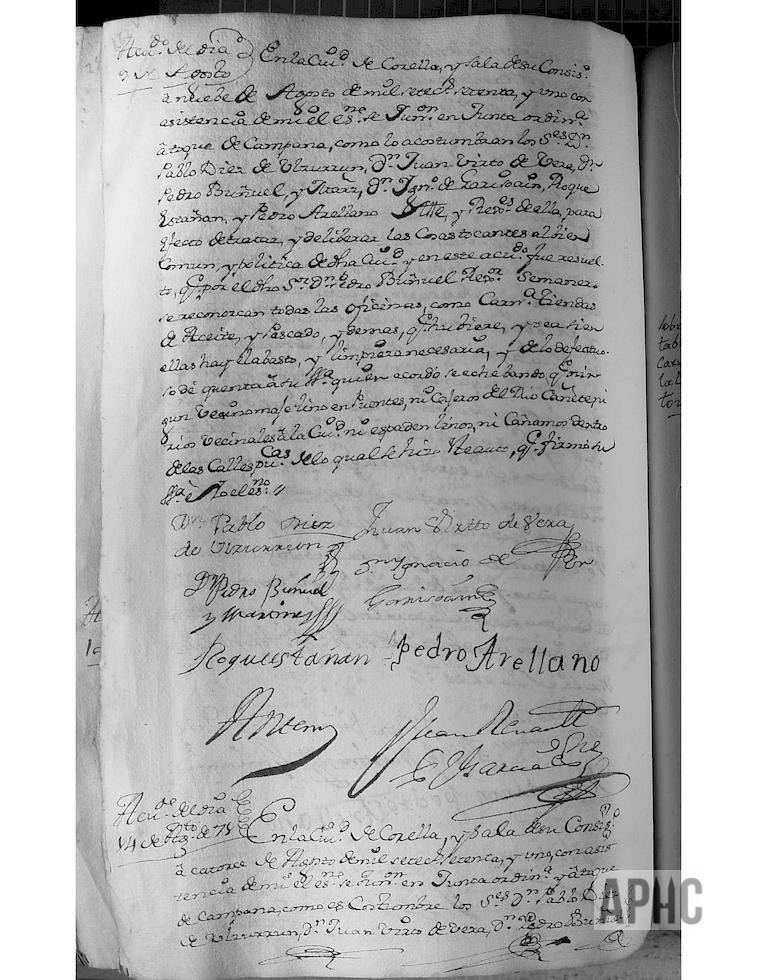 Acu.do del dia
9 de Agosto
En la Ciu.d de Corella, y sala de su Consis.o
à nuebe de Agosto de mil setec.s setenta, y uno con
asistencia de mi el es.no se Jun.on en Junca ordin.a
à toque de Campana, como lo acostumbran los S.es D.n
Pablo Diez de Ulzurrun, D.n Juan Virto de Vera, D.n
Pedro Buñuel y Mrz, D.n Ign.o de Garisoain, Roque
Estañan, y Pedro Arellano Alle, y Rex.es de ella, para
Efecto de tratar, y deliberar las Cosas tocantes al bien
Comun, y politica de dha Ciu.d y en este acu.do fue resuel
to, q.e por el dho S.or D.n Pedro Buñuel Rex.or Semaner.o
se reconozcan todas las oficinas, como Carn.a tiendas
de Aceite, y Pescado, y demas, q.e hubiere, y sea si en
ellas hay el abasto, y limpieza necesaria, y de lo defectuo
so dé quenta à su quien acordo se eche bando q.e nin
gun Vecino moje lino en Puentes, ni Cajeros del Rio Cañete
rios Vecinales à la Ciu.d ni espaden linos, ni Cañamos dentro
de las Calles pu.cas de lo qual se hizo Reauto, q.e firmó su
è Yo el es.no
D.n Pablo Diez
de Ulzurrun
Juan Virtto de Vera
D.n Pedro Buñuel
y Martinez
D.n Ygnacio de
Garisoain
Roque estañan
Pedro Arellano
Ante mi
Juan Renault
y Garcia
Acu.do del dia
14 de Ag.to de 71
En la Ciu.d de Corella, y sala de su Consis.o
à catorce de Agosto de mil setec.s setenca, y uno, con asis
tencia de mi el es.no se Jun.on en Junca ordin.a y à toque
de Campana, como es Costumbre los S.es D.n Pablo Diez
de Ulzurrun, D.n Juan Virto de Vera, D.n Pedro Buñuel
APHC